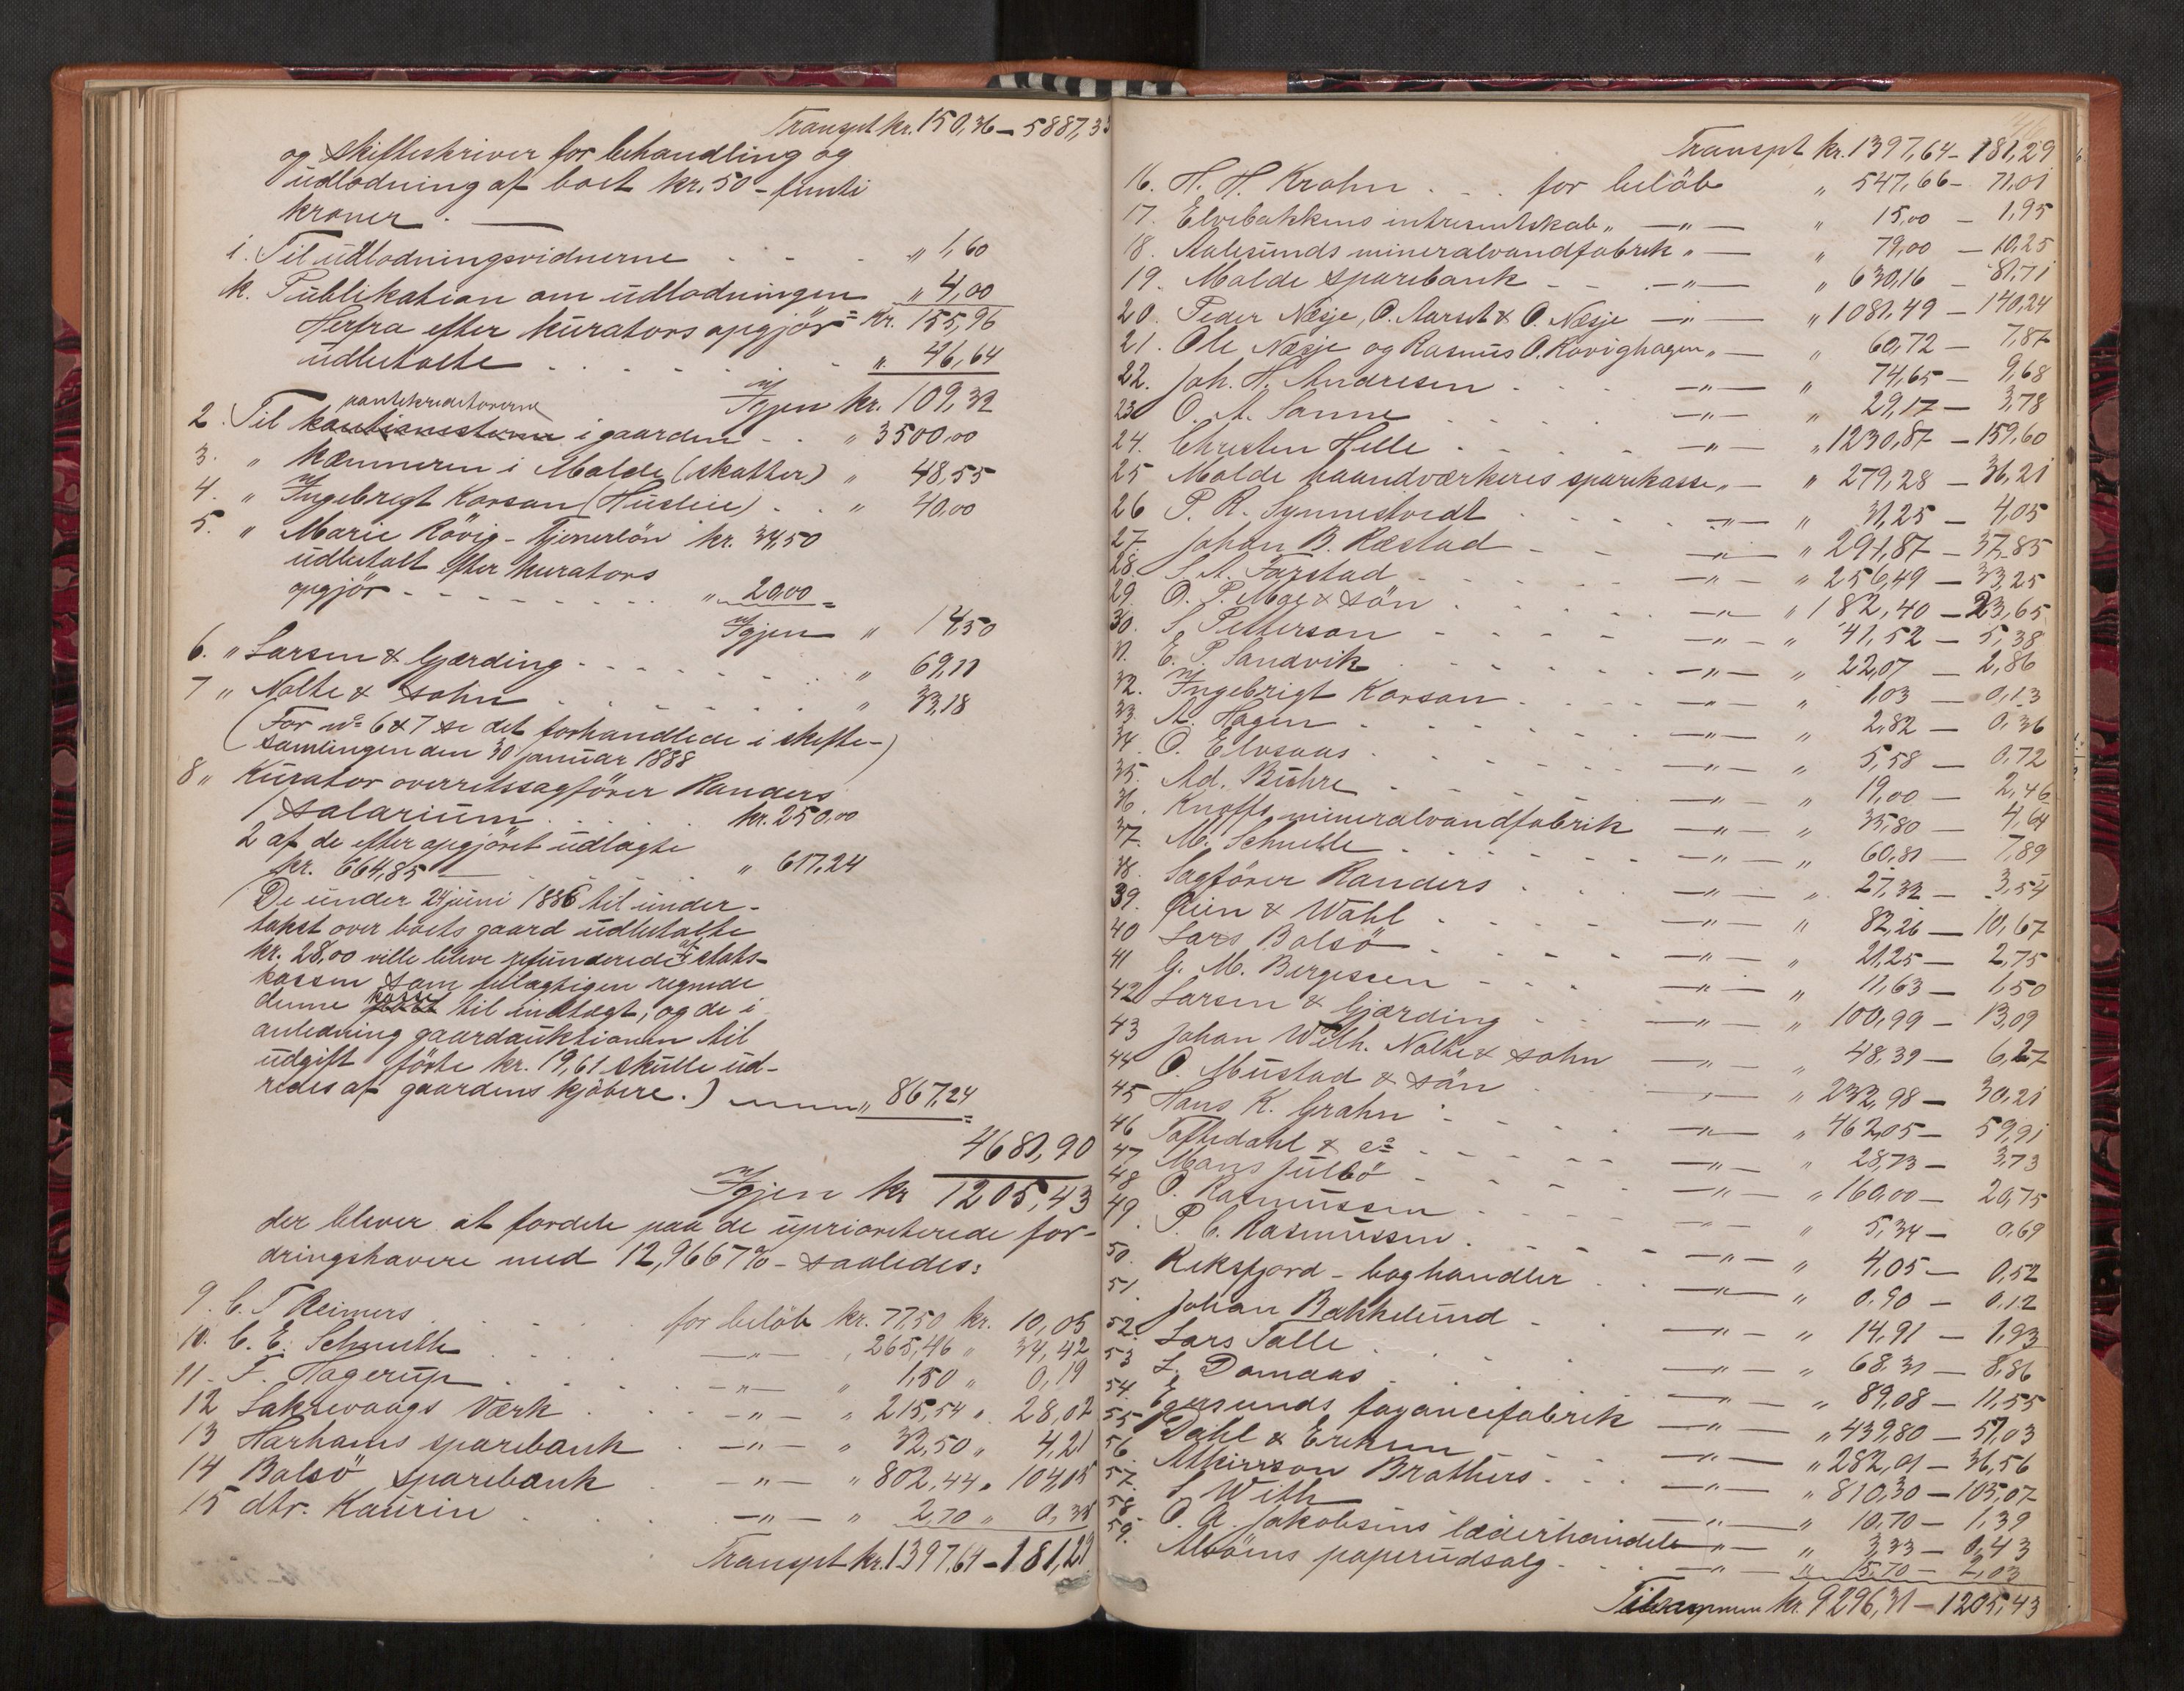 Transpt kr. 150,36 - 5887,33
og skifteskriver for behandling og
udlodning af boet kr. 50 - femti
kroner. —
i. Til udlodningsvidnerne . . . " 1,60
k. Publikation om udlodningen " 4,00
Herfra efter kurators opgjör = kr. 155,96
udbetalte . . . . . . " 46,64
Igjen kr. 109,32
pantekreditorerne
2. Til kautionisterne i gaarden - . . " 3500,00
3. " Kæmneren i Molde (skatter) " 48,55
4. " Ingebrigt Korsan (Husleie) . . " 40,00
5. " Marie Rövig - Tjenerlön kr. 34,50
udbetalt efter kurators
opgjör - - - - - - - - . " 20,00 =
Igjen " 14,50
6. " Larsen & Gjærding - - . . . . . " 69,11
7 " Nolte & sohn . . . . . . . " 33,18
(For No 6 & 7 se det forhandlede i skifte-)
(samlingen den 30 januar 1888 )
8 " Kurator overretssagförer Randers
1 salarium . . . . . kr. 250,00
2 af de efter opgjöret udlagte
kr. 664,85 — . . . " 617,24
(De under 24 juni 1886 til under-
takst over boets gaard udbetalte
kr. 28,00 ville blive refunderede af stats-
kassen som feilagtigen regnede
denne kasse til indtægt, og de i
anledning gaardauktionen til
udgift förte kr. 19,61 skulle ud-
redes af gaardens kjöbere.) —— " 867,24
4681,90
Igjen kr 1205,43
der bliver at fordele paa de uprioriterede for-
dringshavere med 12,9667 % - saaledes:
9. C. T Reimers . . . . . for belöb kr. 77,50 kr. 10,05
10. C. E. Schmith . . . . —"— " 265,46 " 34,42
11 - F. Hagerup . . . . . -"— " 1,50 " 0,19
12 Laksevaags Værk . . . -"— " 215,54 " 28,02
13 Harhams sparebank . —"— " 32,50 " 4,21
14 Bolsö sparebank . -"— " 802,44 " 104,05
15 dtr. Kaurin . . . . —"— " 2,70 " 0,35
Transpt kr. 1397,64 - 181,29
Transpt kr. 1397,64 - 181,29
16. H. H. Krohn . . . for belöb " 547,66 - 71,01
17. Elvebakkens intresentskab " —"— " 15,00 - 1,95
18. Aalesunds mineralvandfabrik " — " 79,00 - 10,25
19. Molde sparebank - - . -"— " 630,16 - 81,71
20. Peder Næsje, O. Aarset & O. Næsje —"— " 1081,49 - 140,24
21. Ole Næsje og Rasmus O. Rovighagen " — " 60,72 - 7,87
22. Joh. H. Andresen . . . —"— " 74,65 - 9,68
23 O. A. Sanne . . . . —"— " 29,17 - 3,78
24. Christen Helle . . . . —"— " 1230,87 - 159,60
25 Molde haandværkeres sparekasse " — " 279,28 - 36,21
26 P. R. Synnestvedt . . . . —"— " 31,25 - 4,05
27. Johan B. Ræstad - - —"— " 291,87 - 37,85
28. S. A. Farstad . . . . . . —"— " 256,49 - 33,25
29. O. P. Moe & sön . . . . —"— " 182,40 - 23,65
30. S. Petterson - - - - —"— " 41,52 - 5,38
31. E. P. Sandvik . . . . —"— " 22,07 - 2,86
32. Ingebrigt Korsan . . . —"— " 1,03 - 0,13
33. A. Hagen . . . . . . —"— " 2,82 - 0,36
34. O. Elvsaas . . . . . —"— " 5,58 - 0,72
35. Ad. Buhre - . . . . . —"— " 19,00 - 2,46
36. Knoffs mineralvandfabrik —"— " 35,80 - 4,64
37. M. Schnelle . . . . . . . —"— " 60,81 - 7,89
38. Sagförer Randers . . . —"— " 27,32 - 3,54
39. Rein & Wahl . . . . . —"— " 82,26 - 10,67
40 Lars Bolsö . . . . . —"— " 21,25 - 2,75
41 G. M. Bergessen - - - —"— " 11,63 - 1,50
42 Larsen & Gjærding . . —"— " 100,99 - 13,09
43 Johan Wilh. Nolte & sohn —"— " 48,39 - 6,27
44 O. Mustad & sön . . . —"— " 232,98 - 30,21
45 Hans K. Grahn - . . . —"— " 462,05 - 59,91
46 Toftedahl & Co - . . . . —"— " 28,73 - 3,73
47 Mons Julbö - . . . . —"— " 160,00 - 20,75
48 O. Rasmussen . . . . —"— " 5,34 - 0,69
49. P. C. Rasmussen . . . —"— " 4,05 - 0,52
50. Reksfjord - boghandler . . —"— " 0,90 - 0,12
51. Johan Bakkelund - . . —"— " 14,91 - 1,93
52. Lars Talle . . . . . —"— " 68,31 - 8,86
53 L. Damaas . . . . . —"— " 89,08 - 11,55
54. Egersunds fayancefabrik —"— " 439,80 - 57,03
55 Dahl & Eriksen . . . —"— " 282,01 - 36,56
56. Atkinson Brothers . . . —"— " 810,30 - 105,07
57. S. With . . . . . —"— " 10,70 - 1,39
58. O. A. Jakobsens læderhandel —"— " 3,33 - 0,43
59. Alvöens papirudsalg - . . —"— " 15,70 - 2,03
Tilsammen kr. 9296,31 - 1205,43